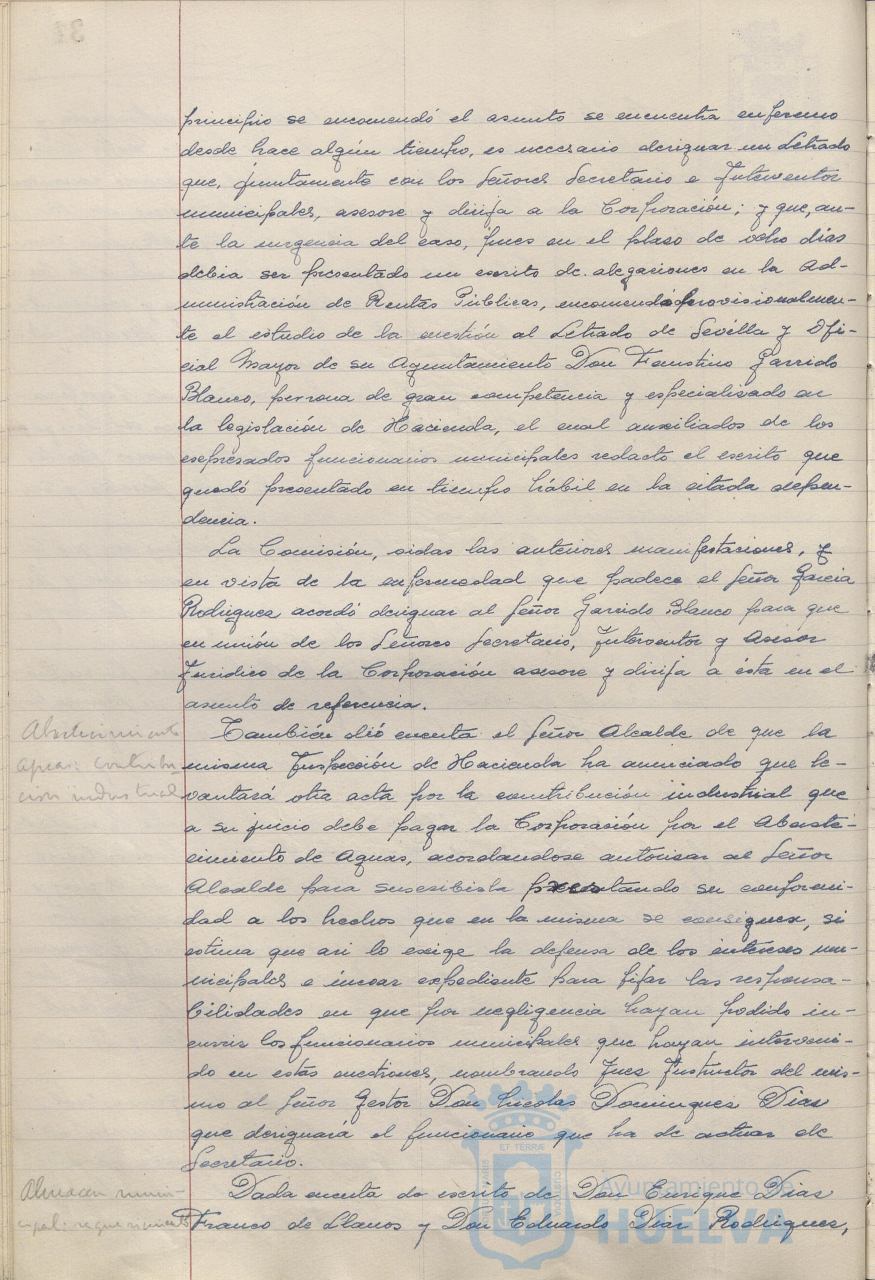 principio se encomendó el asunto se encuentra enfermo
desde hace algún tiempo, es necesario designar un Letrado
que, juntamente con los Señores Secretario e Interventor
municipales, asesore y dirija a la Corporación; y que, an-
te la urgencia del caso, pues en el plaso de ocho días
debia ser presentado un escrito de alegaciones en la Ad-
ministración de Rentas Públicas, encomendó provisionalmen-
te el estudio de la cuestión al Letrado de Sevilla y Ofi-
cial Mayor de su Ayuntamiento Don Faustino Garrido
Blanco, persona de gran competencia y especialisado en
la legislación de Hacienda, el cual auxiliados de los
expresados funcionarios municipales redactó el escrito que
quedó presentado en tiempo hábil en la citada depen-
dencia.
La Comisión, oidas las anteriores manifestaciones, y
en vista de la enfermedad que padece el Señor Garcia
Rodrigues acordó designar al Señor Garrido Blanco para que
en unión de los Señores Secretario, Interventor y Asesor
Juridico de la Corporación asesore y dirija a ésta en el
asunto de referencia.
Abastecimiento
aguas: contribu-
ción industrial
También dió cuenta el Señor Alcalde de que la
misma Inspección de Hacienda ha anunciado que le-
vantará otra acta por la contribución industrial que
a su juicio debe pagar la Corporación por el Abaste-
cimiento de Aguas, acordandose autorisar al Señor
Alcalde para suscribirla prestando su conformi-
dad a los hechos que en la misma se consiguen, si
estima que asi lo exige la defensa de los intereses mu-
nicipales e incoar expediente para fijar las responsa-
bilidades en que por negligencia hayan podido in-
currir los funcionarios municipales que hayan interveni-
do en estas cuestiones, nombrando Jues Instructor del mis-
mo al Señor Gestor Don Nicolas Domingues Dias
que designará el funcionario que ha de actuar de
Secretario.
Almacen muni-
cipal: requerimiento
Dada cuenta de escrito de Don Enrique Dias
Franco de Llanos y Don Eduardo Dias Rodrigues,
Ayuntamiento de
HUELVA